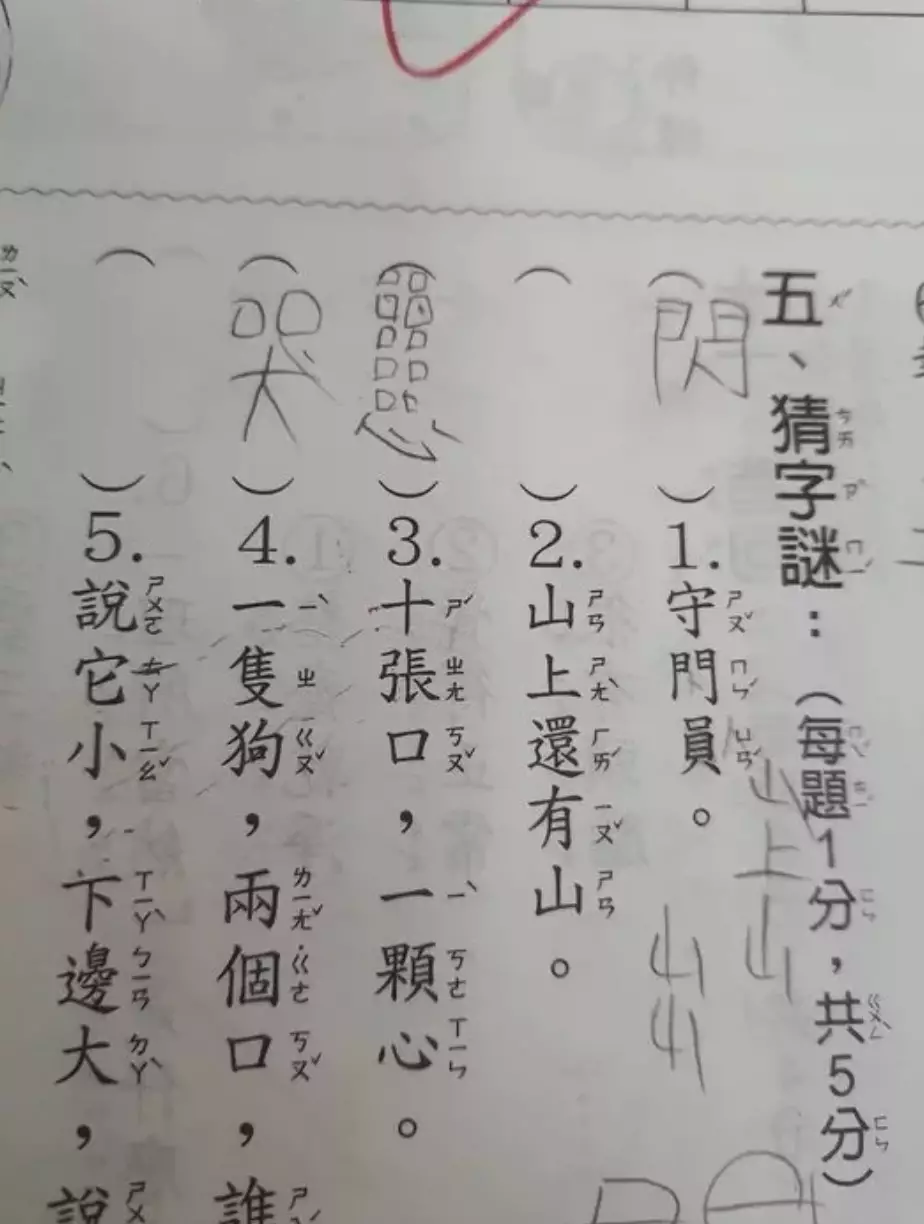 五、猜字謎：（每題1分，共5分）
山上山
山山
（門）1.守門員。
（）2.山上還有山。
（）3.十張口，一顆心。
（哭）4.一隻狗，兩個口，誰
（）5.說它小，下邊大，說